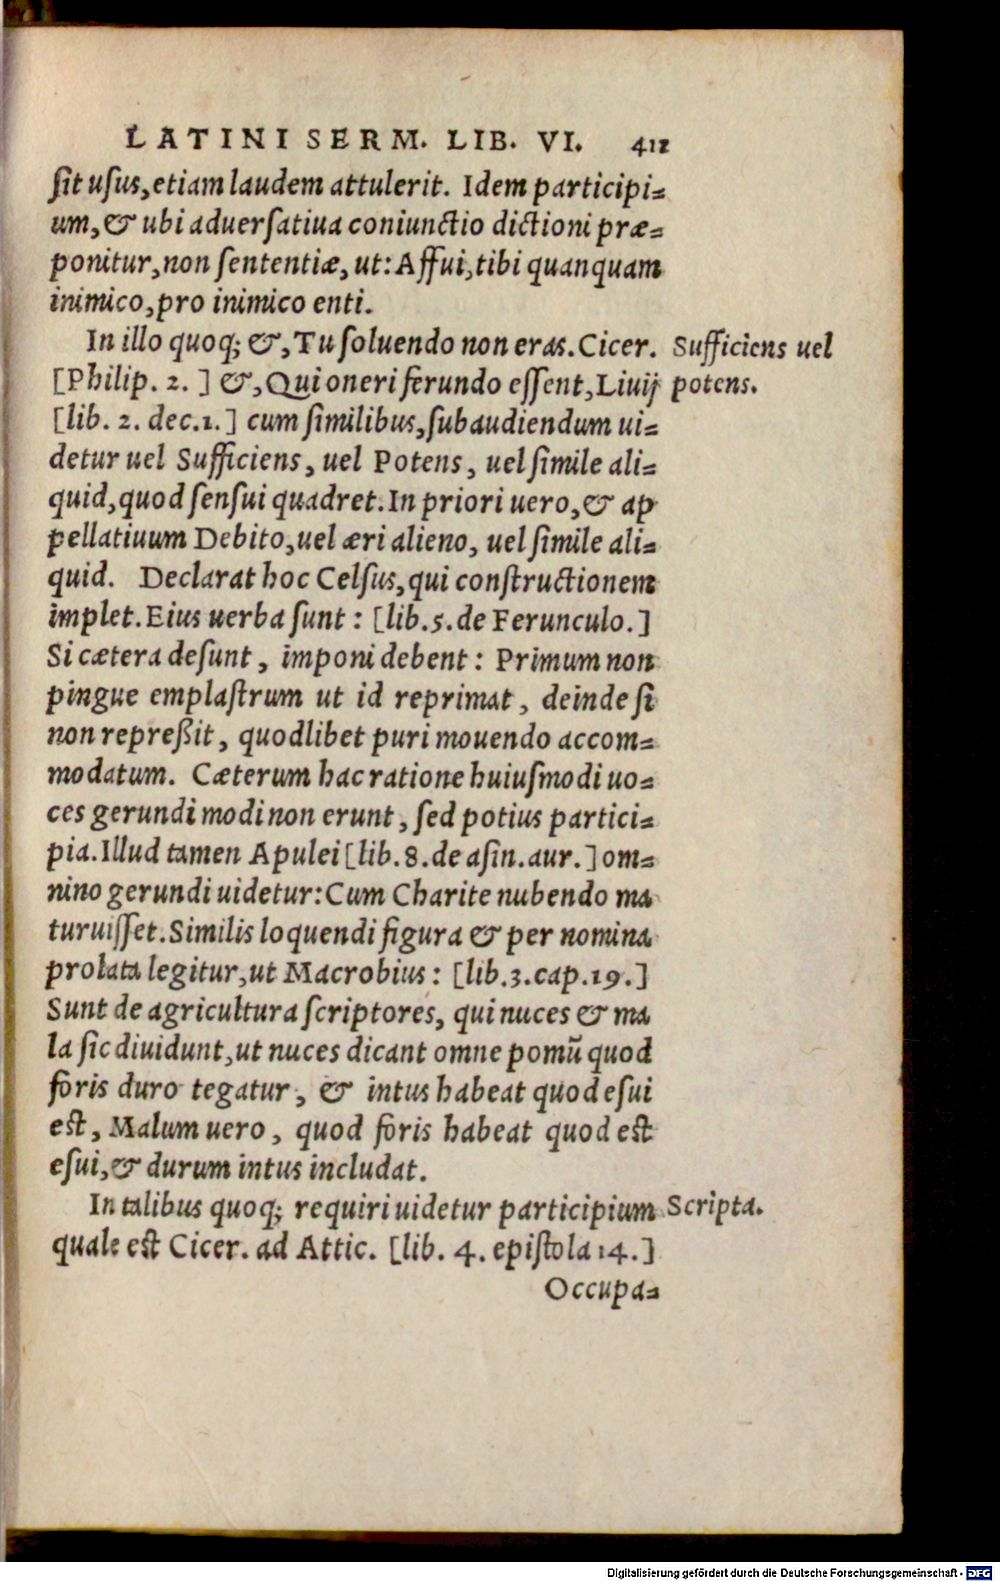 LATINI SERM. LIB. VI. 411
ſit uſus, etiam laudem attulerit. Idem participi=
um, & ubi aduerſatiua coniunctio dictioni præ=
ponitur, non ſententiæ, ut: Affui, tibi quanquam
inimico, pro inimico enti.
In illo quoq; &, Tu ſoluendo non eras. Cicer. Sufficiens uel
[Philip. 2. ] &, Qui oneri ferundo eſſent, Liuij potens.
[lib. 2. dec.1.] cum ſimilibus, ſubaudiendum ui=
detur uel Sufficiens, uel Potens, uel ſimile ali=
quid, quod ſenſui quadret. In priori uero, & ap
pellatiuum Debito, uel æri alieno, uel ſimile ali=
quid. Declarat hoc Celſus, qui conſtructionem
implet. Eius uerba ſunt: [lib.5.de Ferunculo.]
Si cætera deſunt, imponi debent: Primum non
pingue emplaſtrum ut id reprimat, deinde ſi
non repreßit, quodlibet puri mouendo accom=
modatum. Cæterum hac ratione huiuſmodi uo=
ces gerundi modi non erunt, ſed potius partici=
pia. Illud tamen Apulei [lib. 8. de aſin. aur.] om=
nino gerundi uidetur: Cum Charite nubendo ma
turuiſſet. Similis loquendi figura & per nomina
prolata legitur, ut Macrobius: [lib.3.cap.19.]
Sunt de agricultura ſcriptores, qui nuces & ma
la ſic diuidunt, ut nuces dicant omne pomū quod
foris duro tegatur, & intus habeat quod eſui
eſt, Malum uero, quod foris habeat quod eſt
eſui, & durum intus includat.
In talibus quoq; requiri uidetur participium Scripta.
quale eſt Cicer. ad Attic. [lib. 4. epiſtola 14.]
Occupa=
Digitalisierung gefördert durch die Deutsche Forschungsgemeinschaft - DFG